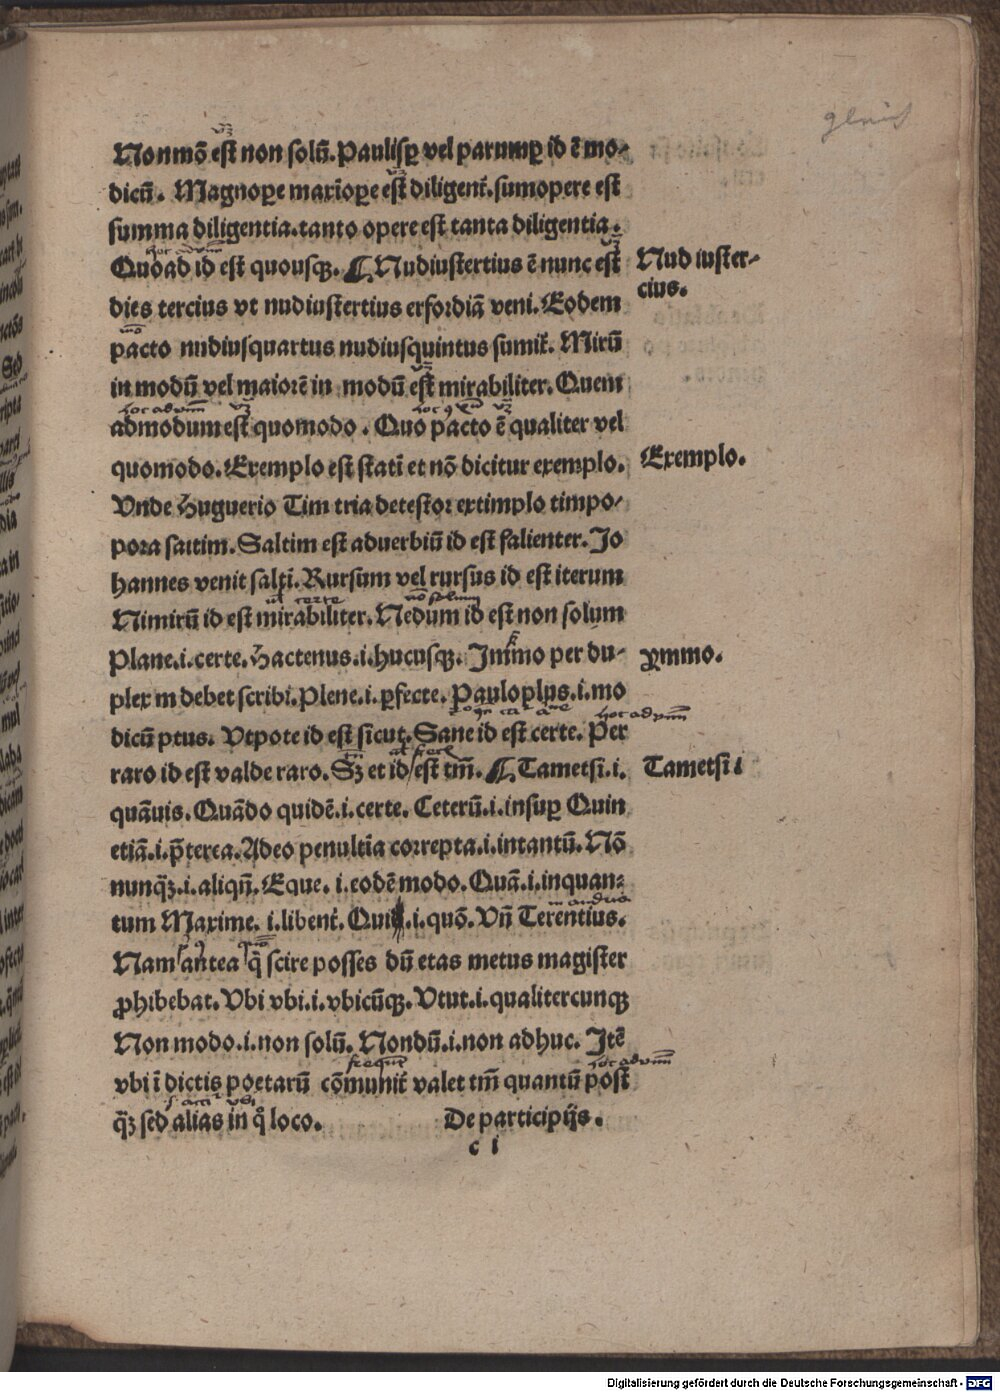 Nonmō est non solū. Paulisꝑ vel parumꝑ id ē mo⸗
dicū. Magnoꝑe maxīoꝑe est diligenṫ. sumopere est
summa diligentia. tanto opere est tanta diligentia.
Quoad id est quousqꝫ. ¶ Nudiustertius ē nunc est
Nudiuster⸗
cius.
dies tercius vt nudiustertius erfordiā veni. Eodem
pacto nudiusquartus nudiusquintus sumiť. Mirū
in modū vel maiorē in modū est mirabiliter. Quem
admodum est quomodo. Quo pacto ē qualiter vel
quomodo. Exemplo est statī et nō dicitur exemplo.
Exemplo.
Vnde Huguerio Tim tria detestor extimplo timpo⸗
pora saitim. Saltim est aduerbiū id est salienter. Jo
hannes venit saltī. Rursum vel rursus id est iterum
Nimirū id est mirabiliter. Nedum id est non solum
Plane .i. certe. Hactenus .i. hucusqꝫ. Jmmo per du⸗
ymmo.
plex m debet scribi. Plene .i. ꝑfecte. Pauloplus .i. mo
dicū plus. Vtpote id est sicut. Sane id est certe. Per
raro id est valde raro. Sꝫ et id est tm̄. ¶ Tametsi .i.
Tametsi:
quāuis. Quādo quidē .i. certe. Ceterū .i. insuꝑ Quin
etiā .i. p̄terea. Adeo penultīa correpta .i. intantū. Nō
nunqꝫ̄ .i. aliqn̄. Eque .i. eodē modo. Quā .i. inquan⸗
tum Maxime .i. libenṫ. Qui .i. quō. Vn̄ Terentius.
Nam antea q̄ scire posses dū etas metus magister
ꝓhibebat. Vbi vbi .i. vbicūqꝫ. Vtut .i. qualitercunqꝫ
Non modo .i. non solū. Nondū .i. non adhuc. Jtē
vbi ī dictis poetarū cōmuniť valet tm̄ quantū post̄
qꝫ̄ sed alias in q̊ loco.
De participijs.
c i